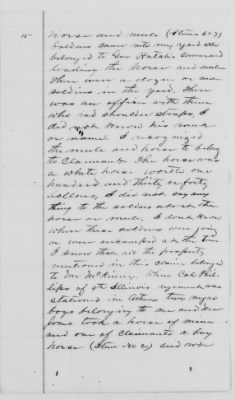 horse and mule (Items 6 & 7)
Soldiers came into my yard who
belonged to Gen Hatch's command
leading the horse and mule
There were a dozen or more
soldiers in the yard. There
was an officer with them
who had shoulder straps, I
did not know his rank
or name. I recognized
the mule and horse to belong
to Claimant. The horse was
a white horse worth one
hundred and thirty or forty
dollars, I did not say any
thing to the soldiers about the
horse or mule, I don't know
where these soldiers were going
or were encamped at the time
I know that all the property
mentioned in this claim belonged
to Mr McKinney. When Col Phil-
lips of 9th Illinois regiment was
stationed in Athens two negro
boys belonging to me and
took a horse of mine
and one of claimants a bay
horse (Item No 2) and rode